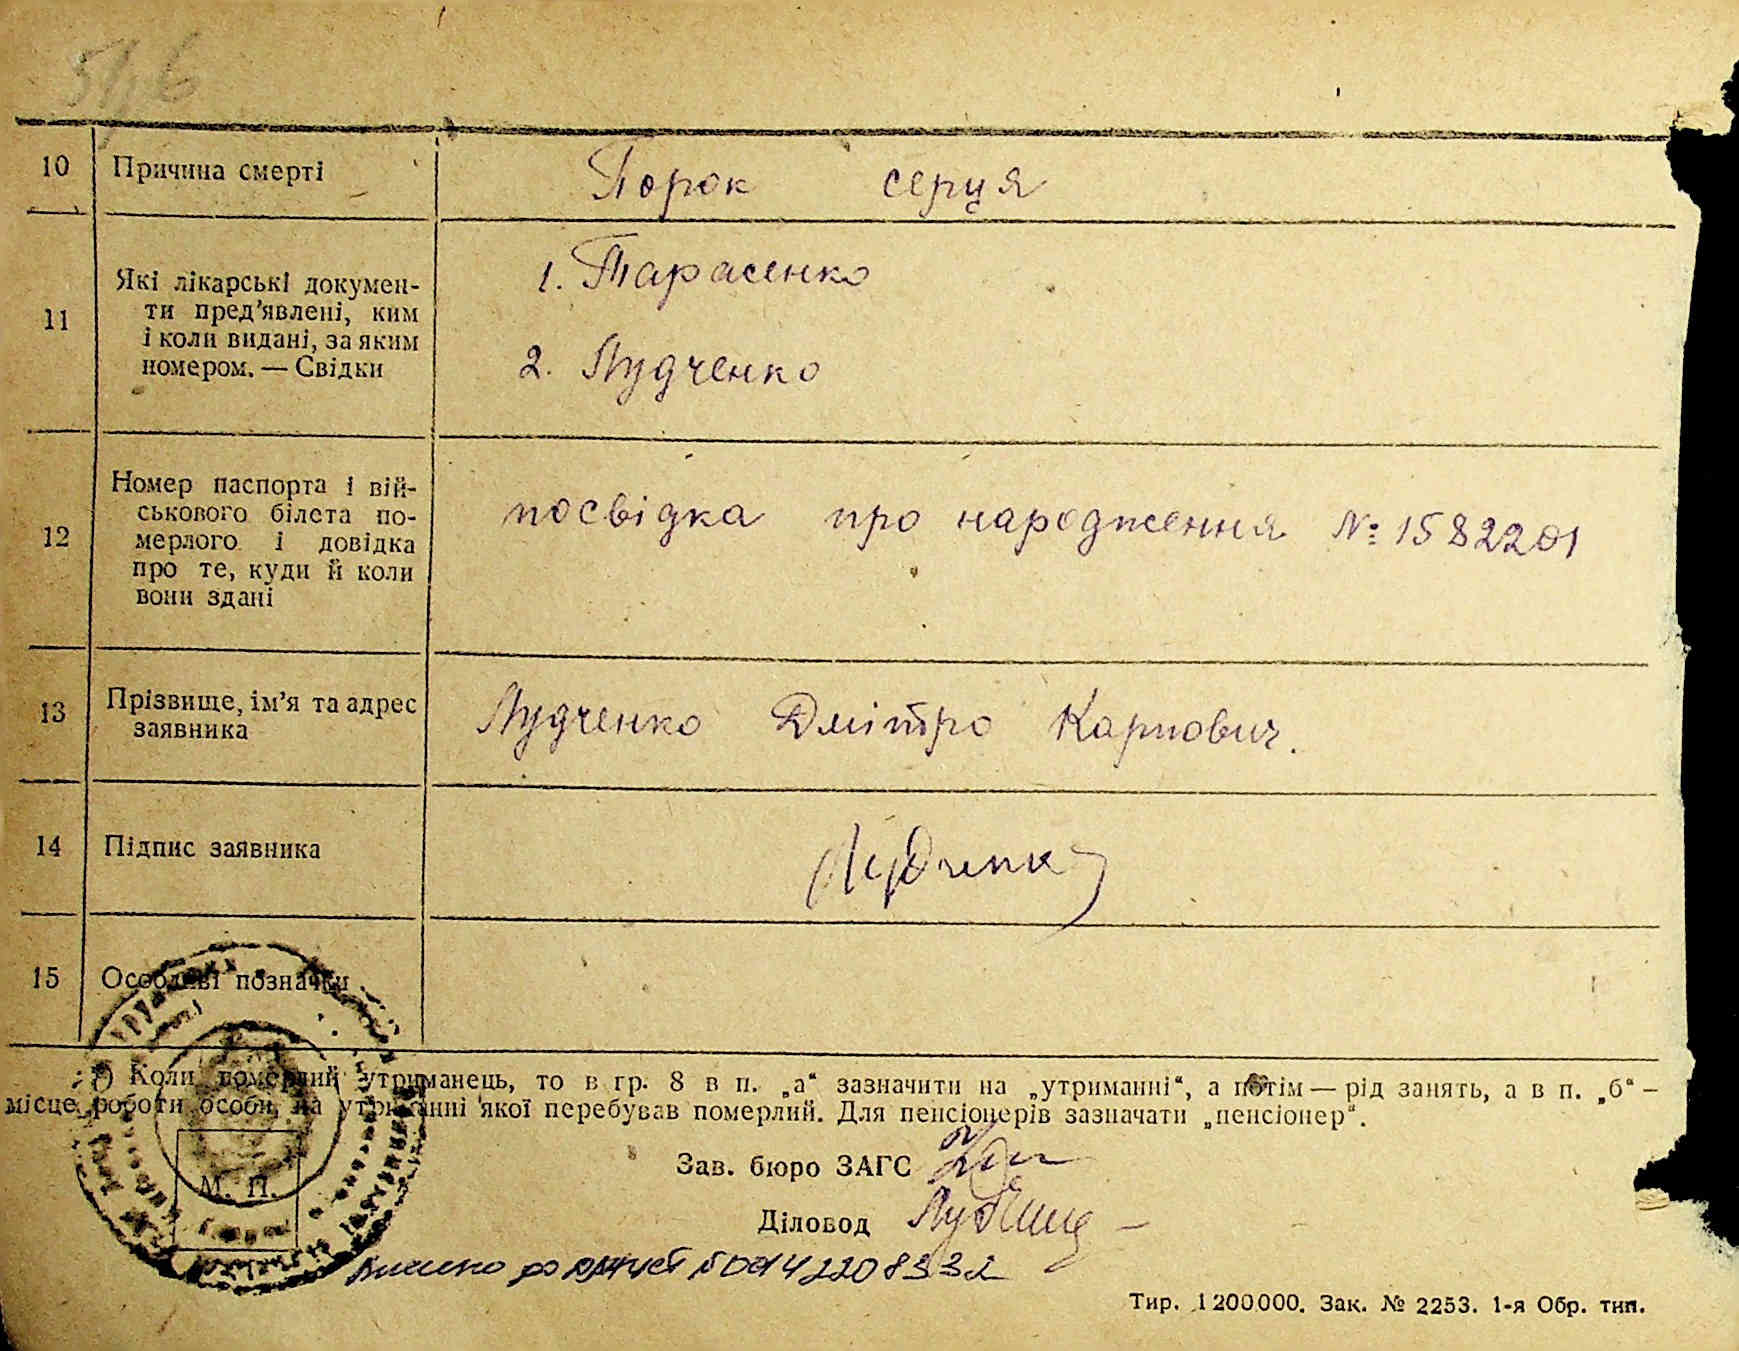 546
10 Причина смерті Порок серця
11 Які лікарські докумен-
ти пред’явлені, ким
і коли видані, за яким
номером. — Свідки
1. Тарасенко
2. Лудченко
12 Номер паспорта і вій-
ськового білета по-
мерлого і довідка
про те, куди й коли
вони здані
посвідка про народження №: 1582201
13 Прізвище, ім’я та адрес
заявника
Лудченко Дмітро Карпович.
14 Підпис заявника Лудченко
15 Особливі позначки
*) Коли померлий утриманець, то в гр. 8 в п. „а“ зазначити на „утриманні“, а потім — рід занять, а в п. „б“ —
місце роботи особи, на утриманні якої перебував померлий. Для пенсіонерів зазначати „пенсіонер“.
Зав. бюро ЗАГС
Діловод
М. П.
Тир. 1 200 000. Зак. № 2253. 1-я Обр. тип.